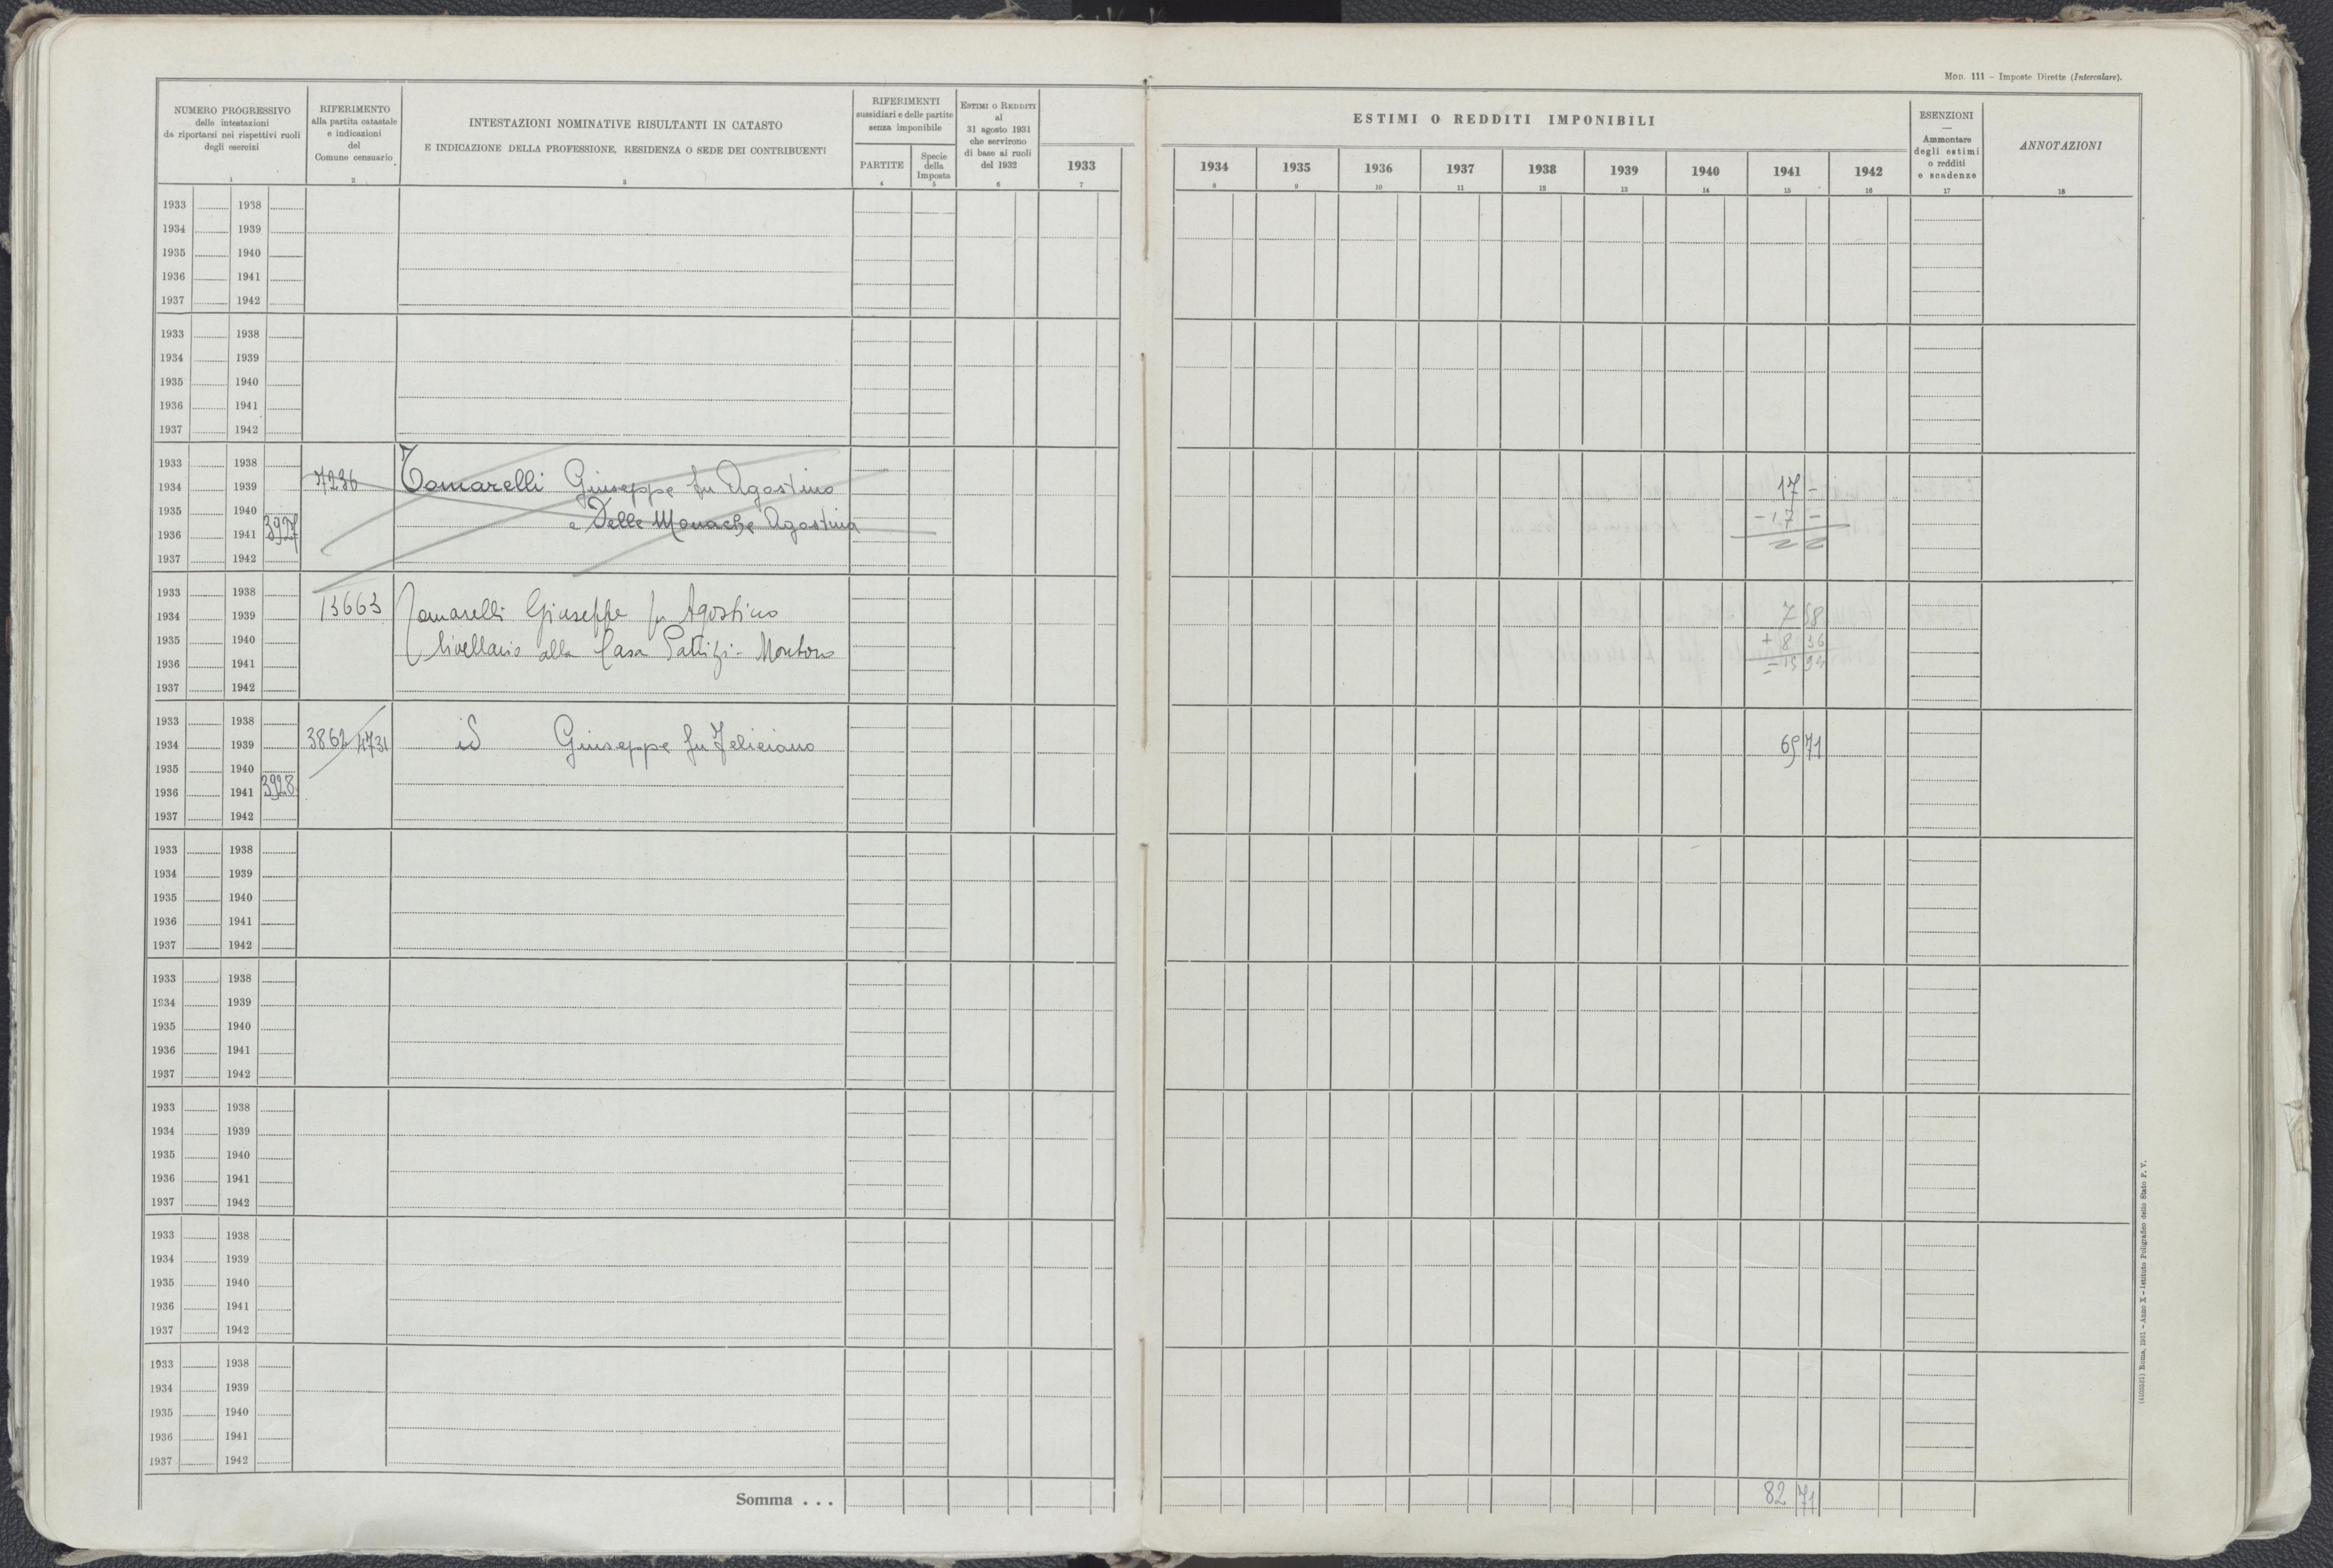 MOD. 111 – Imposte Dirette (Intercalare).
NUMERO PROGRESSIVO
delle intestazioni
da riportarsi nei rispettivi ruoli
degli esercizi
1
RIFERIMENTO
alla partita catastale
e indicazioni
del
Comune censuario
2
INTESTAZIONI NOMINATIVE RISULTANTI IN CATASTO
E INDICAZIONE DELLA PROFESSIONE, RESIDENZA O SEDE DEI CONTRIBUENTI
3
RIFERIMENTI
sussidiari e delle partite
senza imponibile
PARTITE
4
Specie
della
Imposta
5
ESTIMI O REDDITI
al
31 agosto 1931
che servirono
di base ai ruoli
del 1932
6
1933
7
ESTIMI O REDDITI IMPONIBILI
1934 1935 1936 1937 1938 1939 1940 1941 1942
8 9 10 11 12 13 14 15 16
ESENZIONI
—
Ammontare
degli estimi
o redditi
e scadenze
17
ANNOTAZIONI
18
1933 1938
1934 1939
1935 1940
1936 1941
1937 1942
1933 1938
1934 1939
1935 1940
1936 1941
1937 1942
1933 1938
1934 1939 7236 Tomarelli Giuseppe fu Agostino 17 –
1935 1940 e Delle Monache Agostina – 17 –
1936 1941 3927
1937 1942
1933 1938
1934 1939 13663 Tomarelli Giuseppe fu Agostino 7 58
1935 1940 livellario alla Casa Patrizi - Montoro + 8 36
1936 1941 = 15 94
1937 1942
1933 1938
1934 1939 3862/4731 id Giuseppe fu Feliciano 65 71
1935 1940
1936 1941 3928
1937 1942
1933 1938
1934 1939
1935 1940
1936 1941
1937 1942
1933 1938
1934 1939
1935 1940
1936 1941
1937 1942
1933 1938
1934 1939
1935 1940
1936 1941
1937 1942
1933 1938
1934 1939
1935 1940
1936 1941
1937 1942
1933 1938
1934 1939
1935 1940
1936 1941
1937 1942
Somma . . . 82 71
Roma, 1931 – Anno X – Istituto Poligrafico dello Stato P. V.